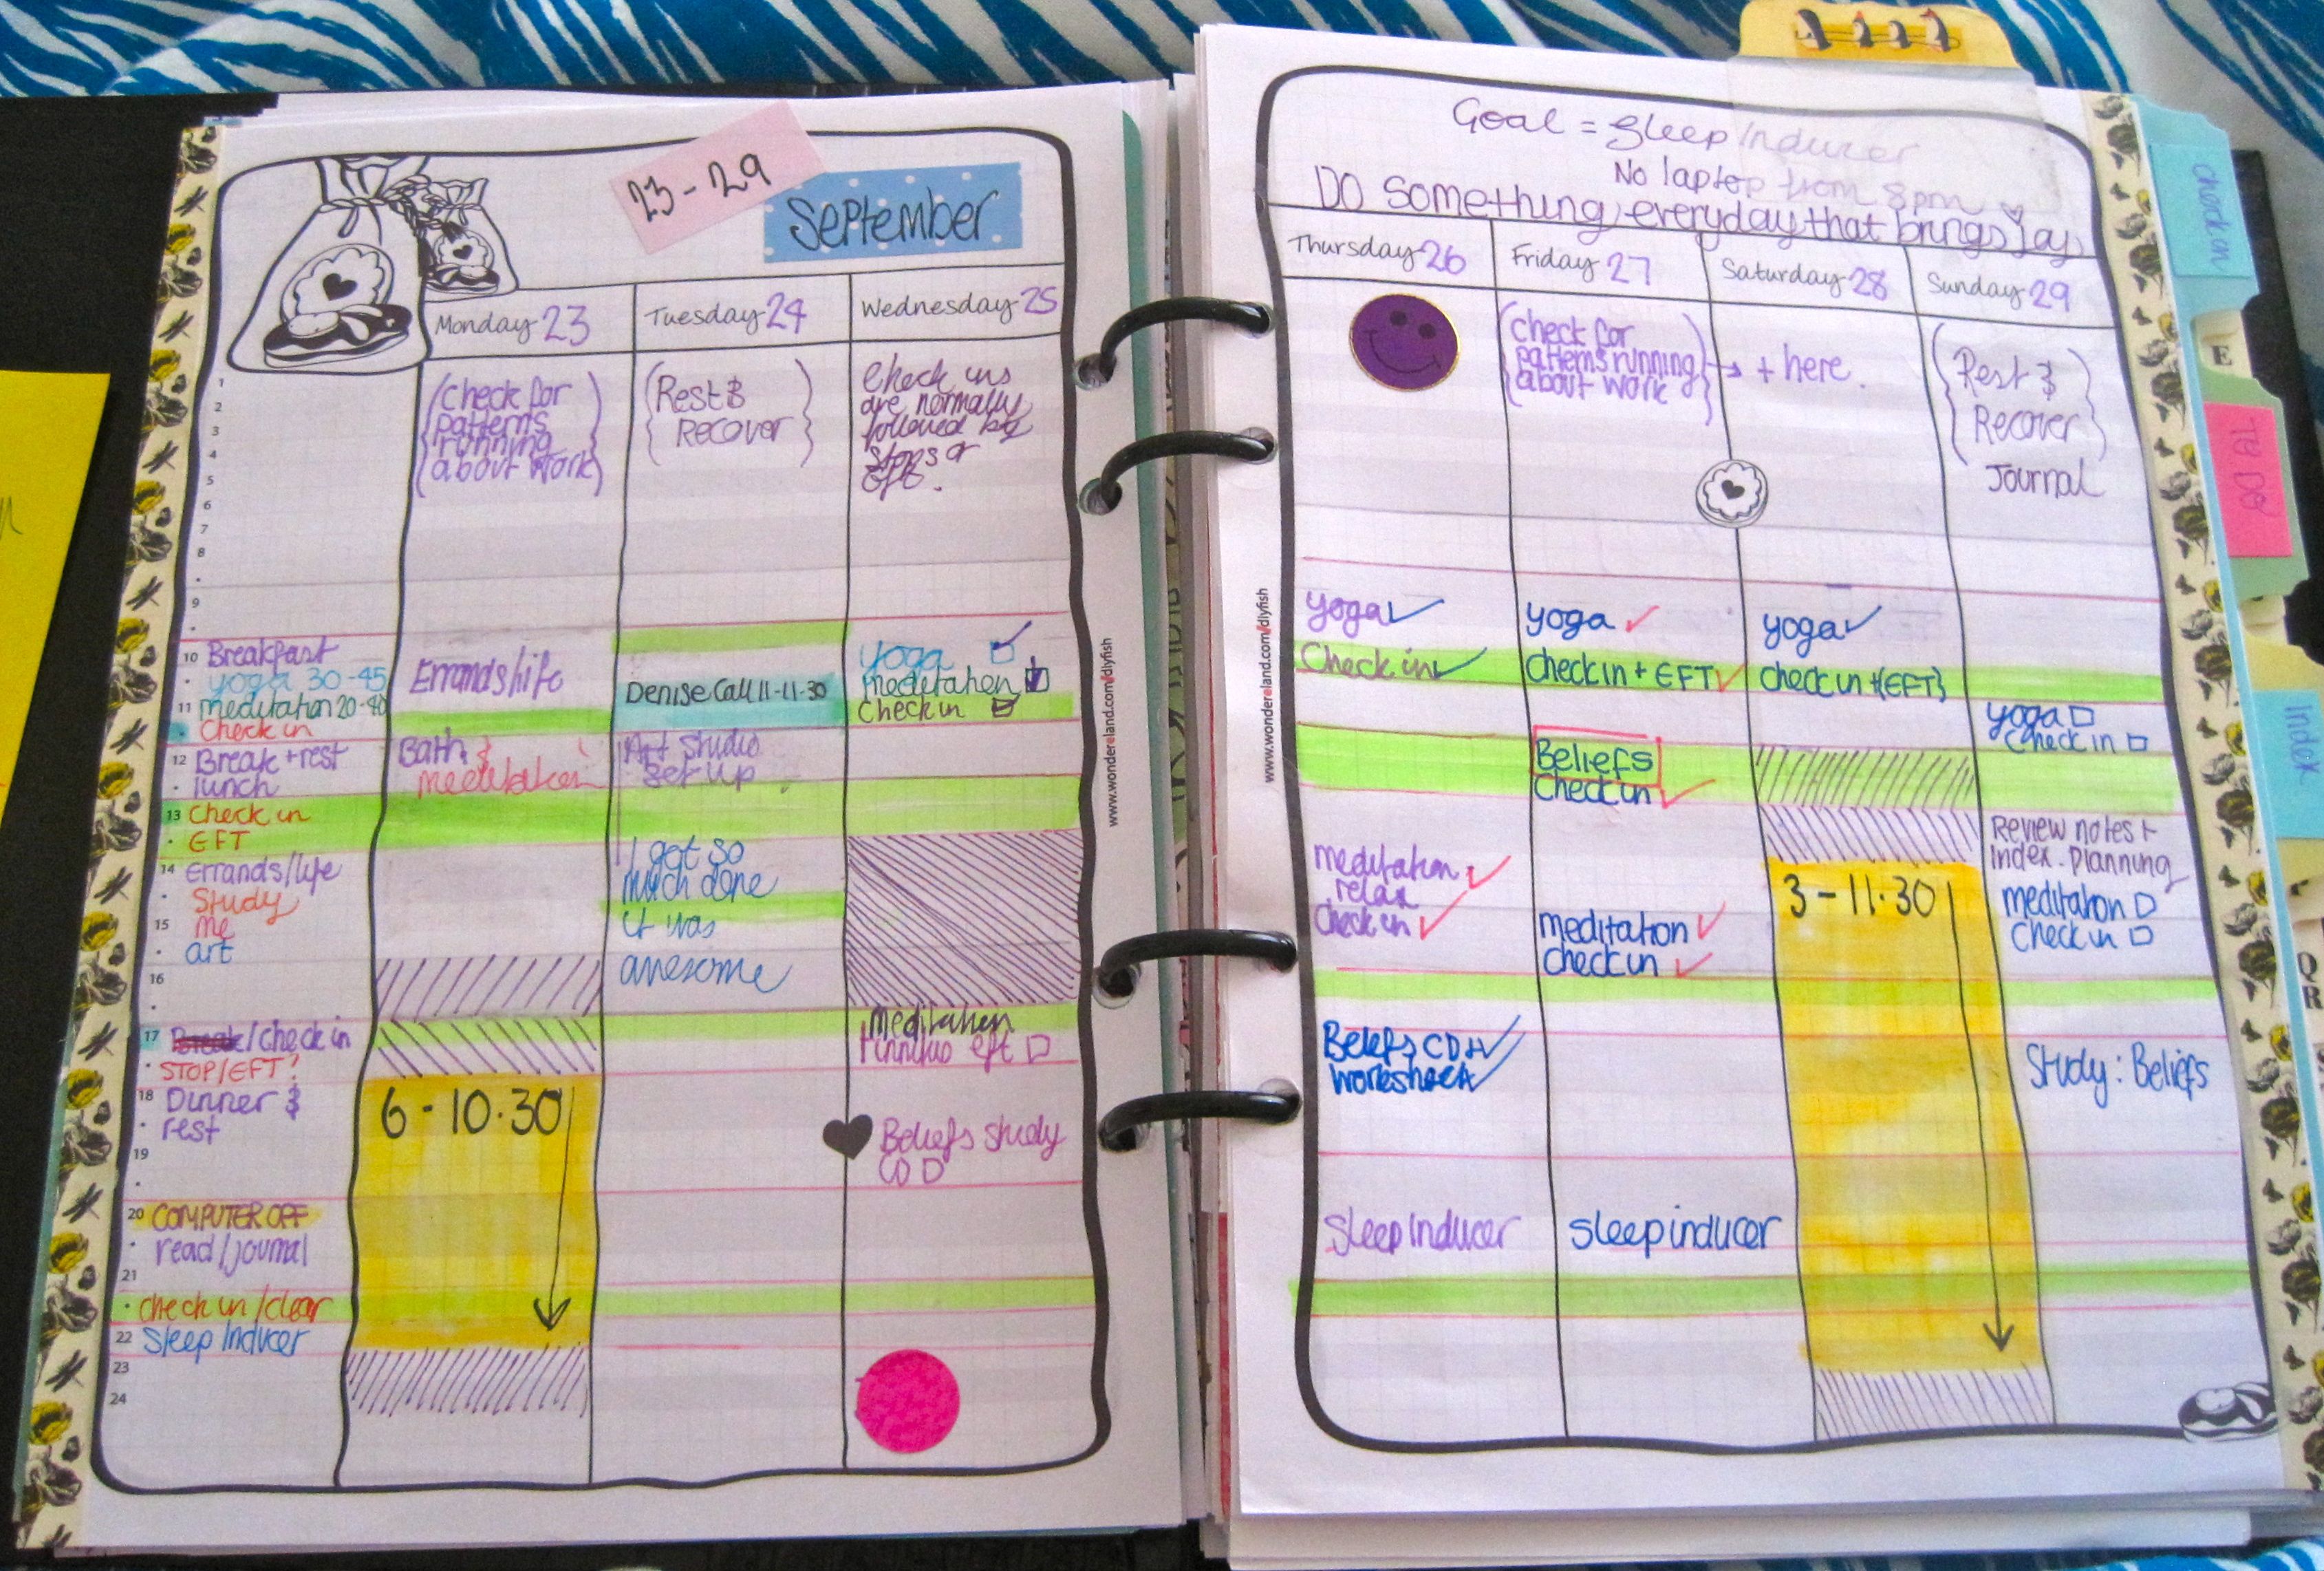 23-29
September
Monday 23
Tuesday 24
Wednesday 25
(Check for
patterns
running
about work)
(Rest &
Recover)
Check ins
are normally
followed by
stops or
EFT.
1
2
3
4
5
6
7
8
9
10 Breakfast
yoga 30-45
11 meditation 20-40
Check in
12 Break + rest
lunch
13 Check in
EFT
14 Errands/life
Study
15 me
art
16
17 Break/check in
STOP/EFT?
18 Dinner &
rest
19
20 COMPUTER OFF
read/journal
21
check in/clear
22 Sleep Inducer
23
24
Errands/life
Bath &
meditation
6-10.30
Denise Call 11-11.30
Art Studio
Set up
I got so
much done
it was
awesome
yoga
meditation
Check in
meditation
eft
Beliefs study
CD
www.wondereland.com/diyfish
Goal = Sleep Inducer
No laptop from 8pm
Do something everyday that brings joy
Thursday 26
Friday 27
Saturday 28
Sunday 29
(Check for
patterns running
about work)
→ + here.
(Rest &
Recover)
Journal
yoga ✓
Check in ✓
meditation ✓
relax
Check in ✓
Beliefs CD + ✓
worksheet ✓
Sleep Inducer
yoga ✓
check in + EFT ✓
Beliefs
Check in ✓
meditation ✓
check in ✓
sleep inducer
yoga ✓
check in + (EFT)
3-11.30
yoga
Check in
Review notes +
Index. Planning
meditation
Check in
Study: Beliefs
www.wondereland.com/diyfish
check in
E
To Do
index
Q
R